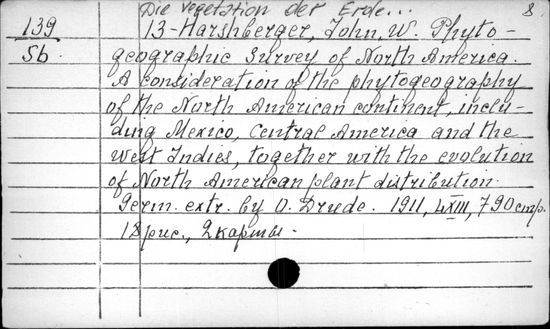 Die Vegetation der Erde... 8.
139 13-Harshberger, John, W. Phyto-
Sb. geographic Survey of North America.
A consideration of the phytogeography
of the North American continent, inclu-
ding Mexico, Central America and the
West Indies, together with the evolution
of North American plant distribution.
Germ. extr. by O. Drude. 1911, LXIII, 790 стр.
18 рис., 2 карты.